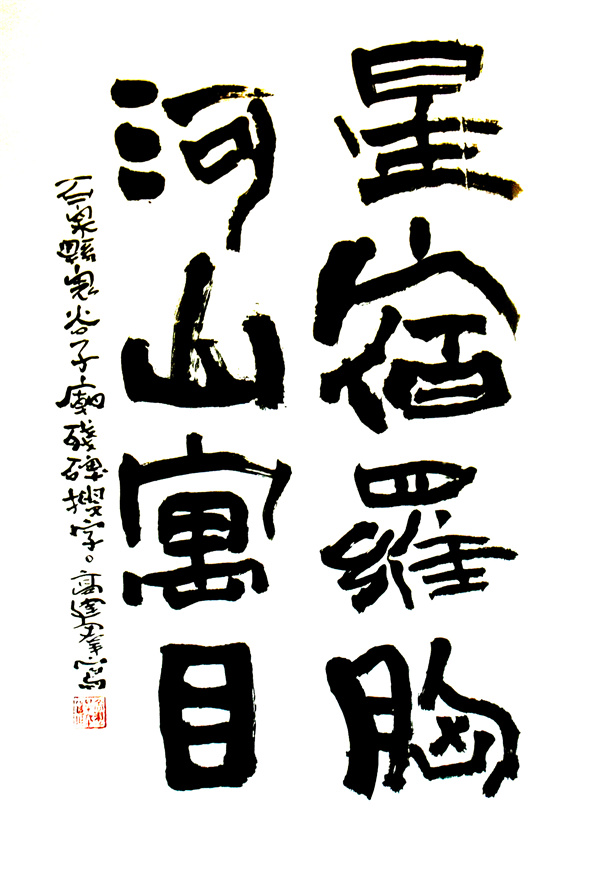 星宿羅胸
河山寓目
石泉縣鬼谷子廟殘碑摸字。高建群寫